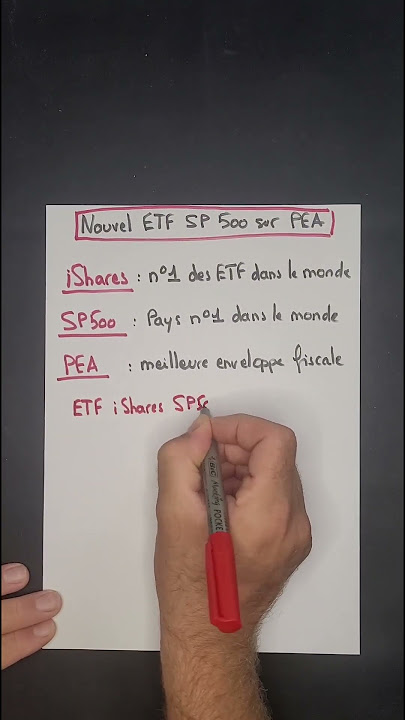 Nouvel ETF SP 500 sur PEA
iShares : n°1 des ETF dans le monde
SP500 : Pays n°1 dans le monde
PEA : meilleure enveloppe fiscale
ETF iShares SP50
BIC Marking POCKET